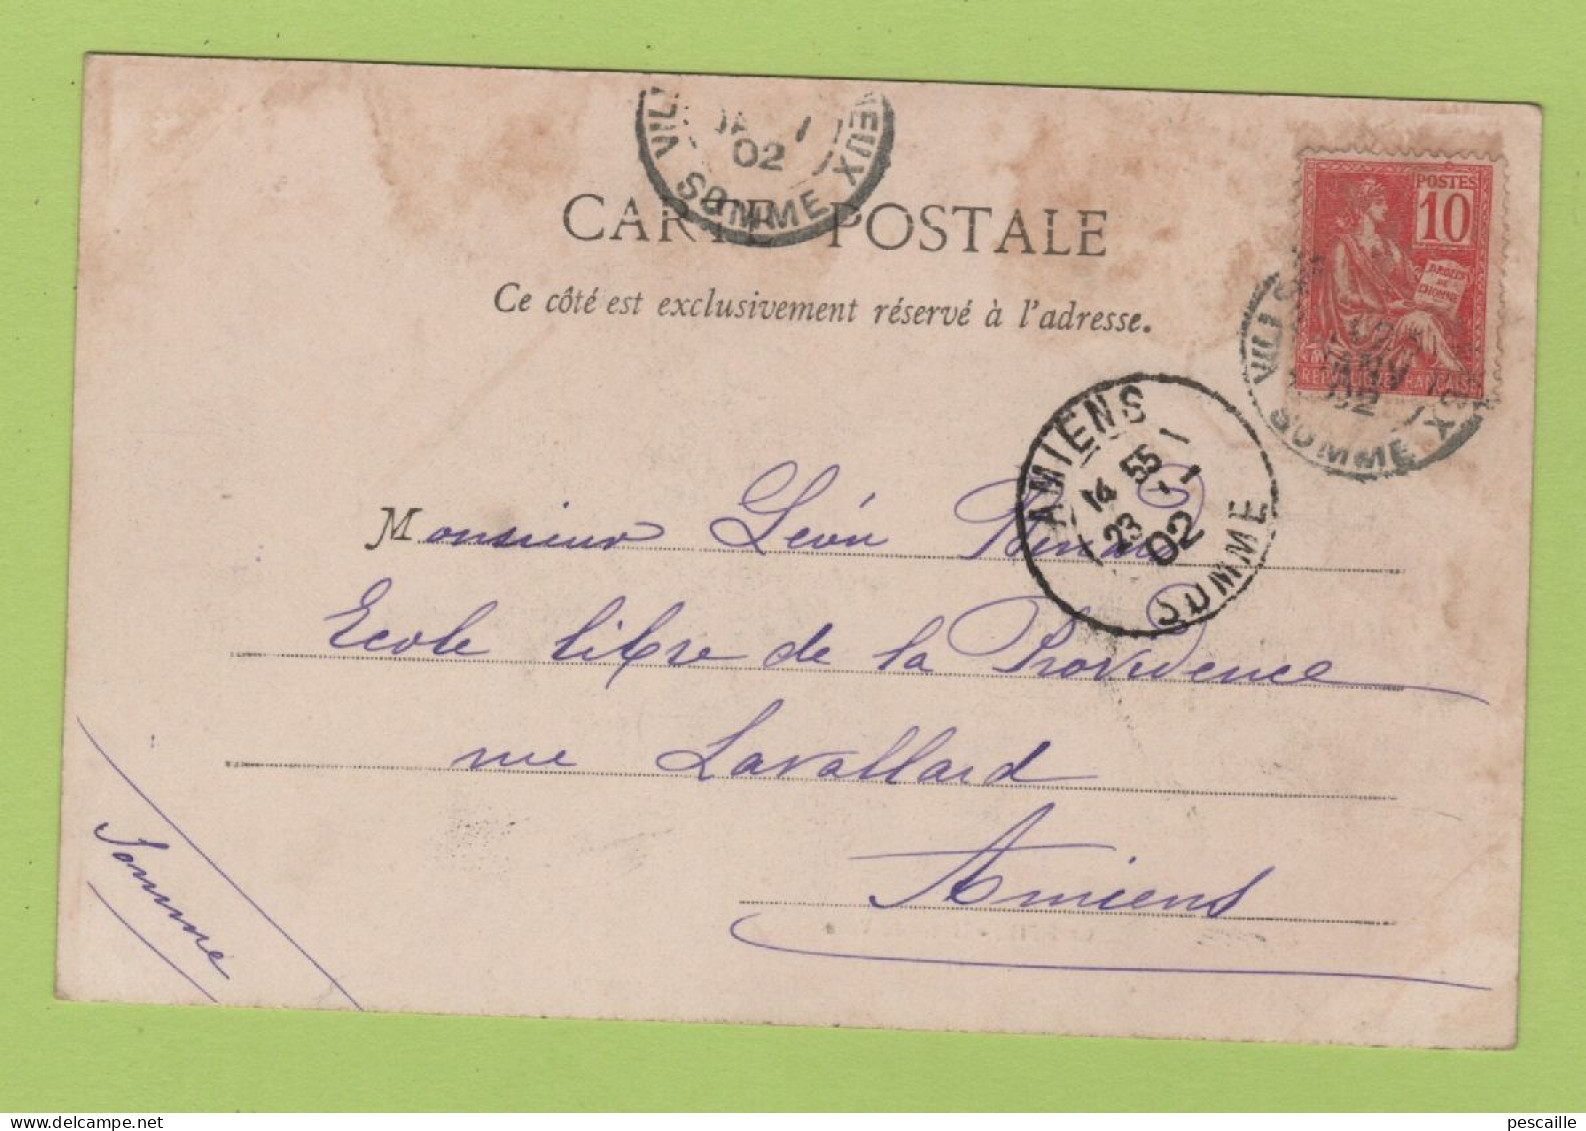 VIL EUX
JA 1
02
SOMME
CARTE POSTALE
Ce côté est exclusivement réservé à l'adresse.
POSTES
10
DROITS
DE
L'HOMME
REPUBLIQUE FRANÇAISE
VILL X
JANV
02
SOMME
AMIENS
14 55
23 - 1
02
SOMME
Monsieur Léon
Ecole libre de la Providence
rue Lavallard
Amiens
Somme
pescaille
delcampe.net